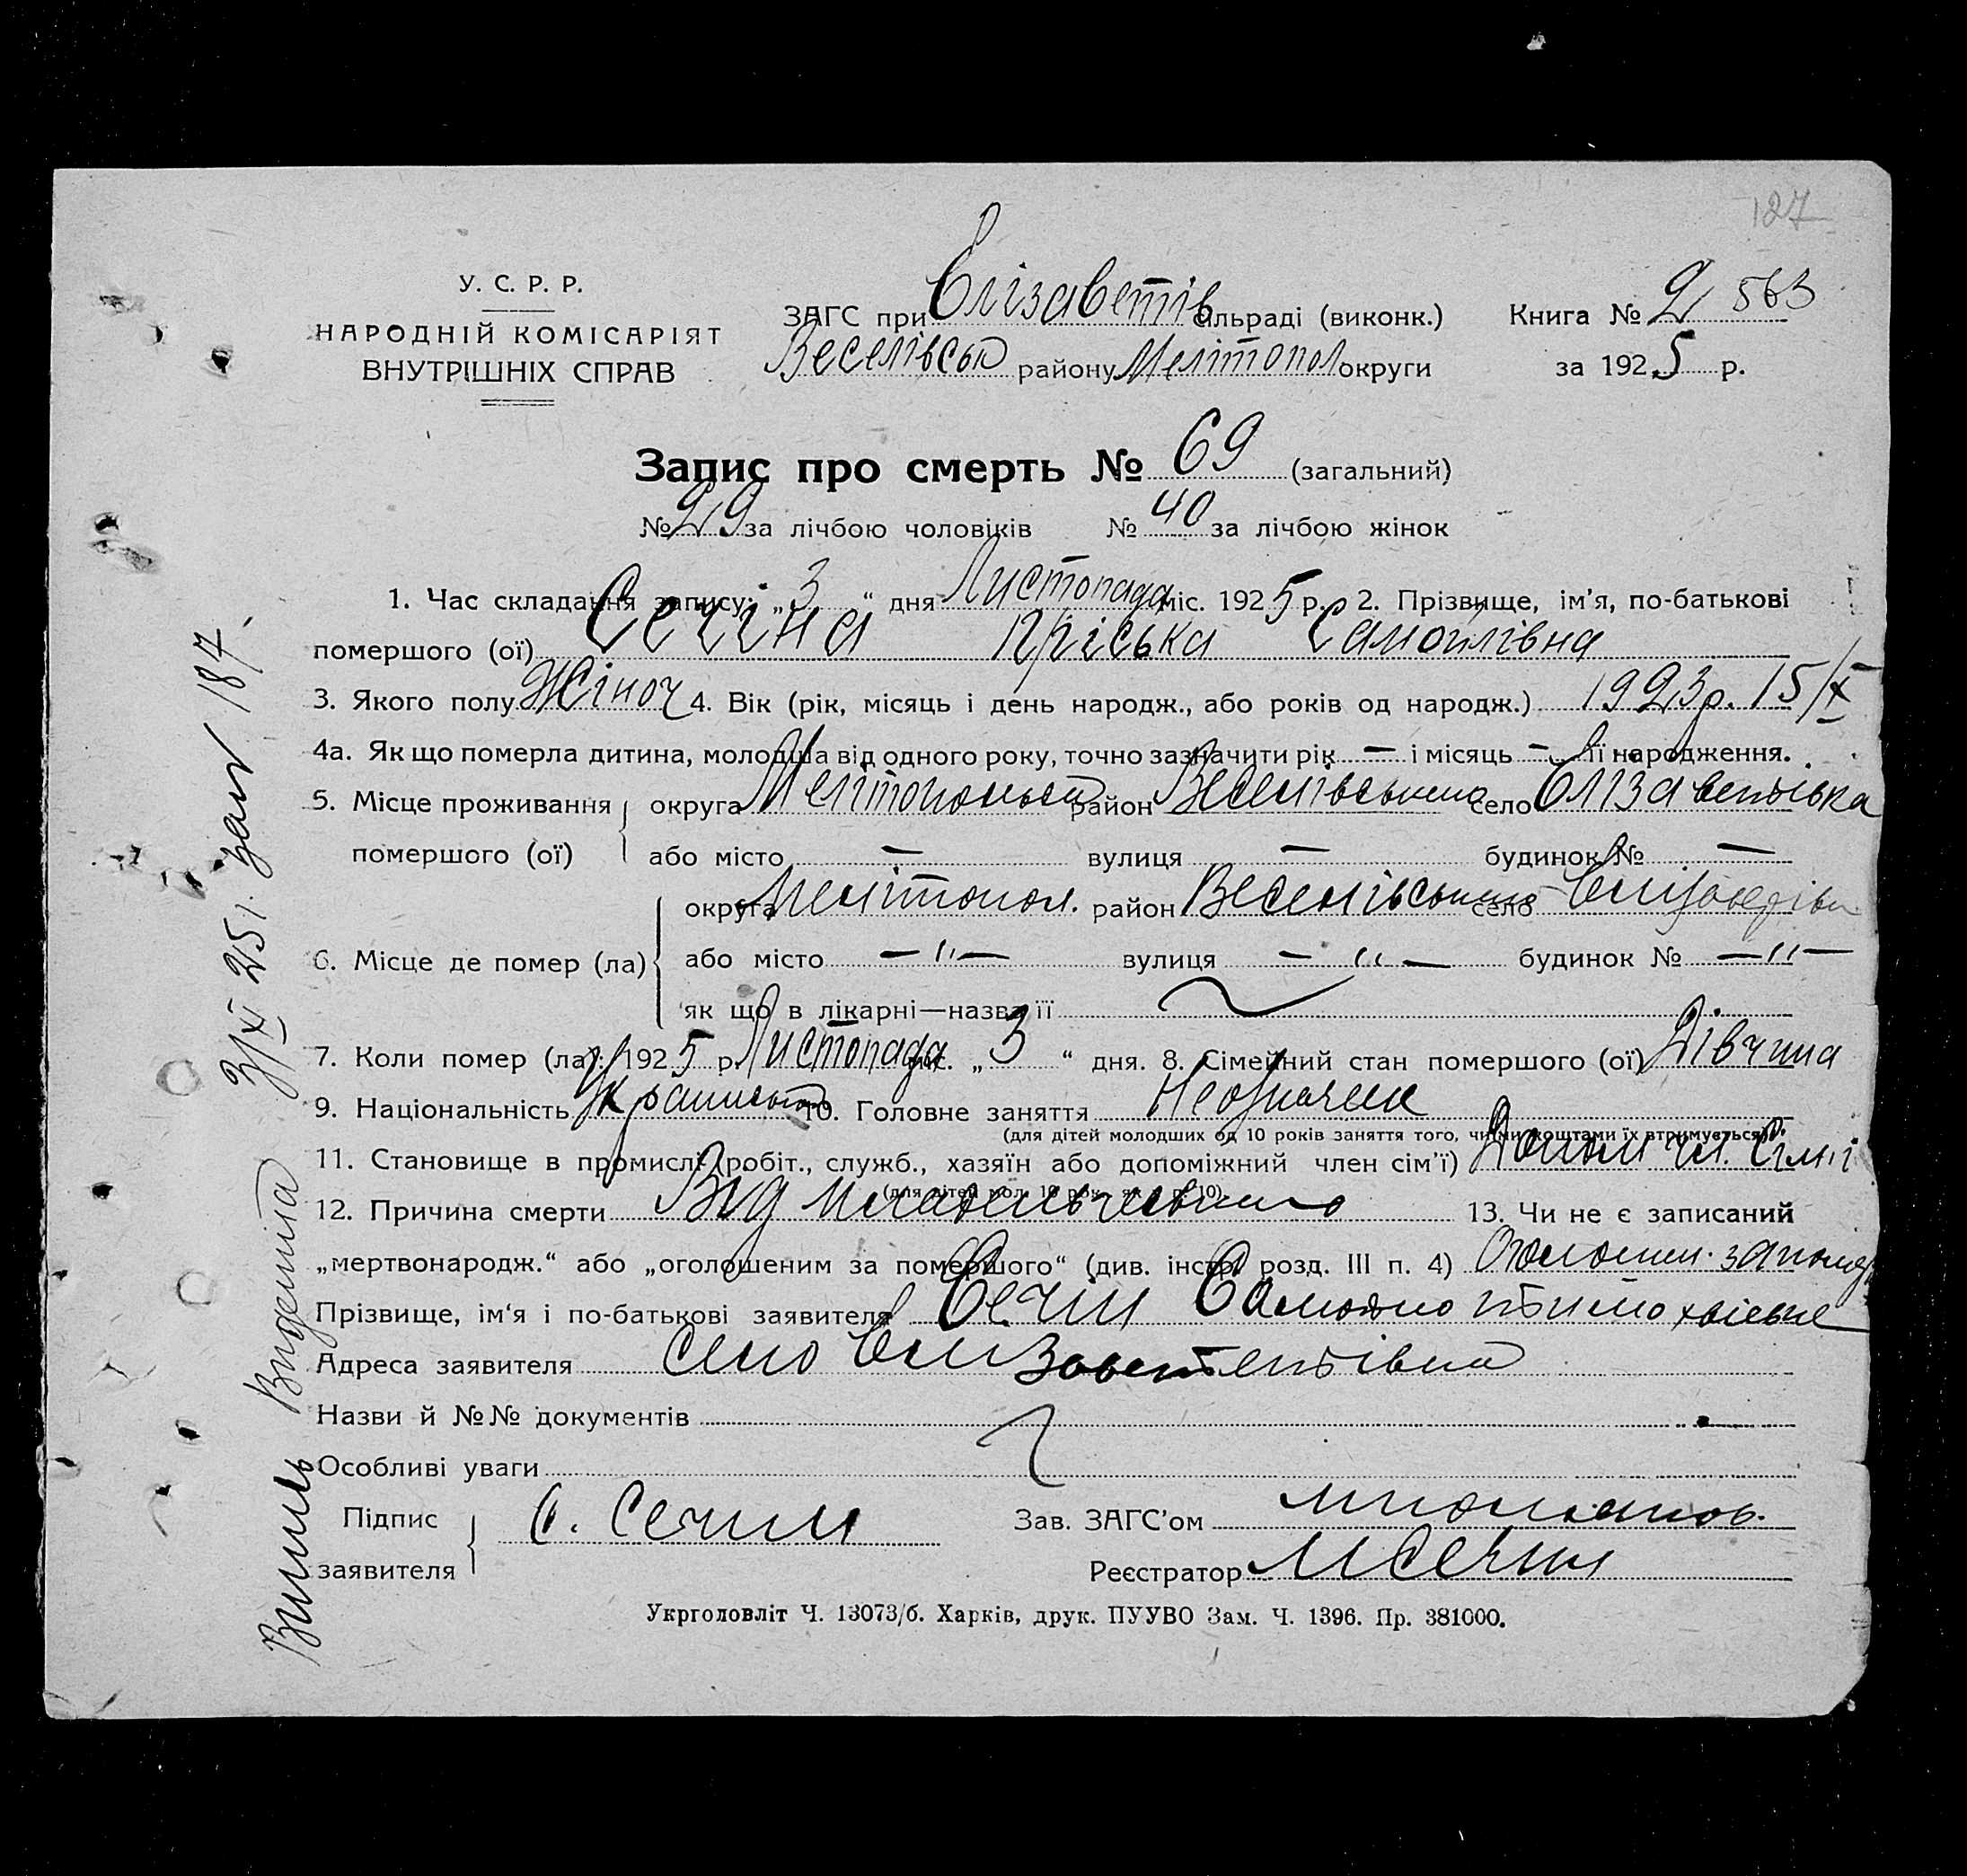 127
У. С. Р. Р.
НАРОДНІЙ КОМІСАРІЯТ
ВНУТРІШНІХ СПРАВ
ЗАГС при Єлізаветів сільраді (виконк.)
Веселівськ району Мелітопол округи
Книга № 2/ 563
за 1925 р.
Запис про смерть № 69 (загальний)
№ 29 за лічбою чоловіків № 40 за лічбою жінок
1. Час складання запису: „3“ дня Листопада міс. 1925 р. 2. Прізвище, ім’я, по-батькові
помершого (ої) Сечіна Пріська Самойлівна
3. Якого полу Жіноч 4. Вік (рік, місяць і день народж., або років од народж.) 1923 р. 15/X
4а. Як що померла дитина, молодша від одного року, точно зазначити рік — і місяць — її народження.
5. Місце проживання округа район Веселівського село Єлізаветьівка
помершого (ої) або місто — вулиця — будинок № —
округа Мелітопол. район Веселівського село
6. Місце де помер (ла) або місто —"— вулиця —"— будинок № —"—
як що в лікарні—назва її
7. Коли помер (ла): 1925 р. Листопада міс. „3“ дня. 8. Сімейний стан помершого (ої) Дівчина
9. Національність 10. Головне заняття
(для дітей молодших од 10 років заняття того, чиїми коштами їх втримується).
11. Становище в промислі (робіт., служб., хазяїн або допоміжний член сім’ї) Допом чл. сімї
(для дітей мол. 10 рок. як у п. 10)
12. Причина смерти Вид младенчеського 13. Чи не є записаний
„мертвонародж.“ або „оголошеним за помершого“ (див. інстр. розд. III п. 4)
Прізвище, ім‘я і по-батькові заявителя Сечін
Адреса заявителя село
Назви й №№ документів
Особливі уваги
Підпис заявителя С. Сечин
Зав. ЗАГС’ом
Реєстратор МСечин
Укрголовліт Ч. 13073/б. Харків, друк. ПУУВО Зам. Ч. 1396. Пр. 381000.
3/XI 25 г. за № 187.